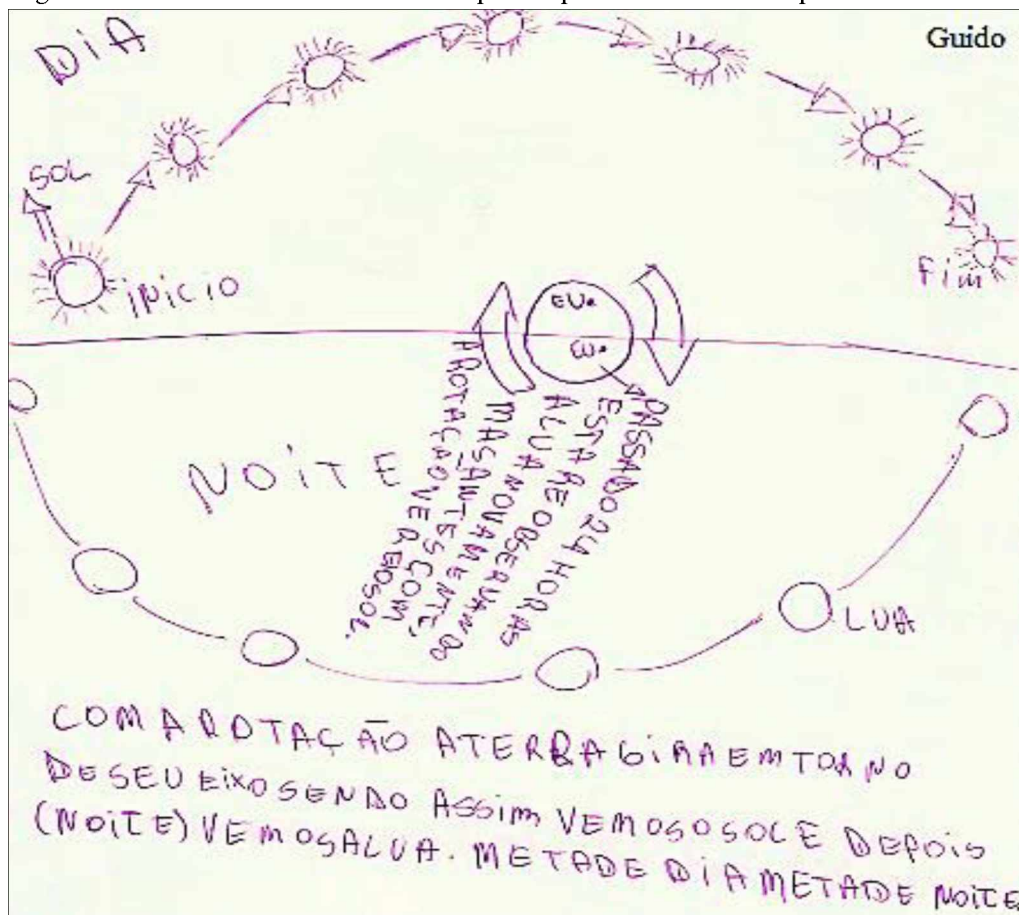 DIA
Guido
SOL
INICIO
FIM
EU
EU
PASSADO 24 HORAS
ESTAREOBSERVANDO
ALUANOVAMENTE,
MAS ANTES COM
AROTAÇÃO VEREIOSOL.
NOITE
LUA
COM AROTAÇÃO ATERRAGIRAEMTORNO
DESEUEIXOSENDO ASSIM VEMOSOSOLE DEPOIS
(NOITE) VEMOSALUA. METADE DIAMETADE NOITE